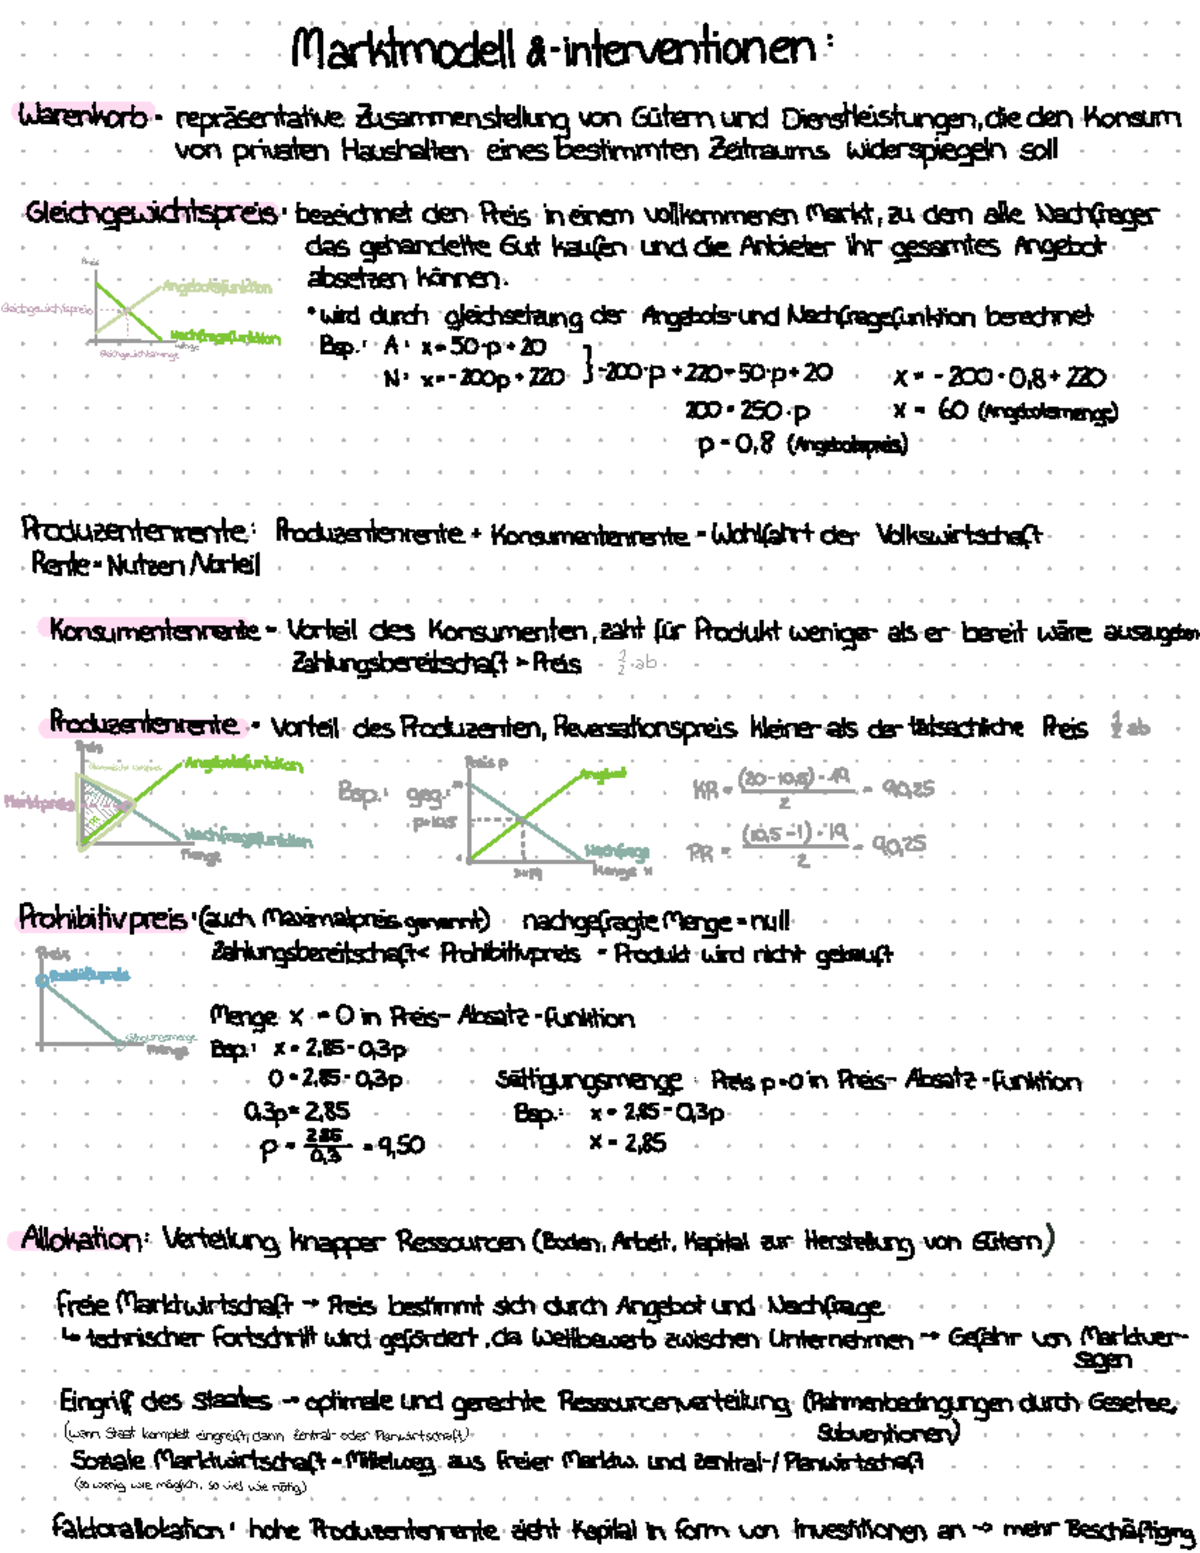 Marktmodell & -interventionen:
Warenkorb - repräsentative Zusammenstellung von Gütern und Dienstleistungen, die den Konsum
von privaten Haushalten eines bestimmten Zeitraums widerspiegeln soll
Gleichgewichtspreis: bezeichnet den Preis in einem vollkommenen Markt, zu dem alle Nachfrager
das gehandelte Gut kaufen und die Anbieter ihr gesamtes Angebot
absetzen können.
Preis
Angebotsfunktion
Gleichgewichtspreis
Nachfragefunktion
Menge
Gleichgewichtsmenge
* wird durch gleichsetzung der Angebots- und Nachfragefunktion berechnet
Bsp.: A: x = 50·p + 20
N: x = -200p + 220 } -200·p + 220 = 50·p + 20
x = -200·0,8 + 220
200 = 250·p
x = 60 (Angebotsmenge)
p = 0,8 (Angebotspreis)
Produzentenrente: Produzentenrente + Konsumentenrente = Wohlfahrt der Volkswirtschaft
Rente = Nutzen/Vorteil
Konsumentenrente = Vorteil des Konsumenten, zahlt für Produkt weniger als er bereit wäre auszugeben
Zahlungsbereitschaft > Preis 1/2·ab
Produzentenrente = Vorteil des Produzenten, Reversationspreis kleiner als der tatsächliche Preis 1/2 ab
Preis
Angebotsfunktion
Marktpreis
Nachfragefunktion
Menge
Bsp.: geg.:
p=10,5
Preis p
Angebot
Nachfrage
x=19
Menge x
KR = (20-10,5)·19 / 2 = 90,25
PR = (10,5-1)·19 / 2 = 90,25
Prohibitivpreis: (auch Maximalpreis genannt) nachgefragte Menge = null
Zahlungsbereitschaft < Prohibitivpreis = Produkt wird nicht gekauft
Preis
Prohibitivpreis
Sättigungsmenge
Menge
Menge x = 0 in Preis- Absatz -funktion
Bsp.: x = 2,85 - 0,3p
0 = 2,85 - 0,3p
0,3p = 2,85
p = 2,85 / 0,3 = 9,50
Sättigungsmenge: Preis p = 0 in Preis- Absatz -funktion
Bsp.: x = 2,85 - 0,3p
x = 2,85
Allokation: Verteilung knapper Ressourcen (Boden, Arbeit, Kapital zur Herstellung von Gütern)
freie Marktwirtschaft → Preis bestimmt sich durch Angebot und Nachfrage
↳ technischer Fortschritt wird gefördert, da Wettbewerb zwischen Unternehmen → Gefahr von Marktver-
sagen
Eingriff des Staates → optimale und gerechte Ressourcenverteilung (Rahmenbedingungen durch Gesetze,
Subventionen)
(wenn Staat komplett eingreift, dann Zentral- oder Planwirtschaft)
Soziale Marktwirtschaft = Mittelweg aus freier Marktw. und Zentral-/Planwirtschaft
(so wenig wie möglich, so viel wie nötig)
faktorallokation: hohe Produzentenrente zieht Kapital in form von Investitionen an → mehr Beschäftigung